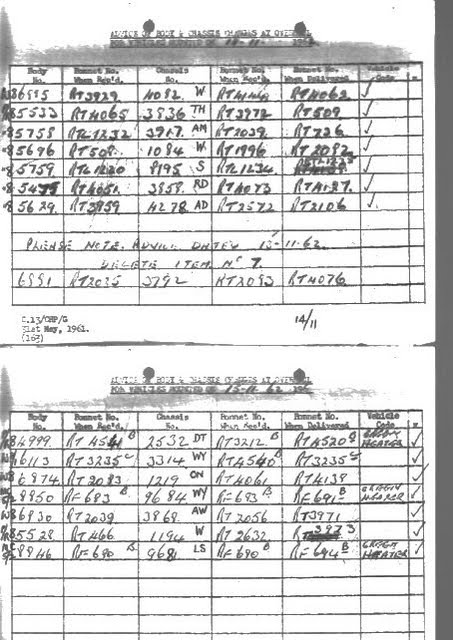 ADVICE OF BODY & CHASSIS CHANGES AT OVERHAUL
FOR VEHICLES MOUNTED ON 14-11- 196
Body No. Bonnet No. When Rec'd. Chassis No. Bonnet No. When Rec'd. Bonnet No. When Delivered Vehicle Code
RT3929 4092 W RT4062 ✓
85533 RT4065 3836 TH RT3972 RT509 ✓
85758 RTL1232 AM RT2039 RT726 ✓
85696 RT509 1084 W RT1996 RT2082 ✓
85759 RTL1220 8195 S RTL1234 ✓
RT4051 3858 RD RT4073 RT4127 ✓
85629 RT3959 4278 AD RT2572 RT2106 ✓
PLEASE NOTE, ADVICE DATED 13-11-62.
DELETE ITEM No 7.
6991 RT2025 3792 RT2093 RT4076
C.13/CHP/G
31st May, 1961.
(163)
14/11
ADVICE OF BODY & CHASSIS CHANGES AT OVERHAUL
FOR VEHICLES MOUNTED ON 15-11-62 196
Body No. Bonnet No. When Rec'd. Chassis No. Bonnet No. When Rec'd. Bonnet No. When Delivered Vehicle Code
84999 RT4541 B 2532 DT RT3212 B RT4520 GREEN HEATER ✓
6113 RT3235 3314 WY RT4540 B RT3235 ✓
6974 RT2093 1219 ON RT4061 RT4139 ✓
8850 RF683 B 9684 WY RF683 B RF691 B HEATER ✓
86930 RT2039 3868 AW RT2056 RT3971 ✓
85528 RT466 1194 W RT2632 3973 ✓
8846 RF690 B 9681 LS RF690 B RF694 B HEATER ✓